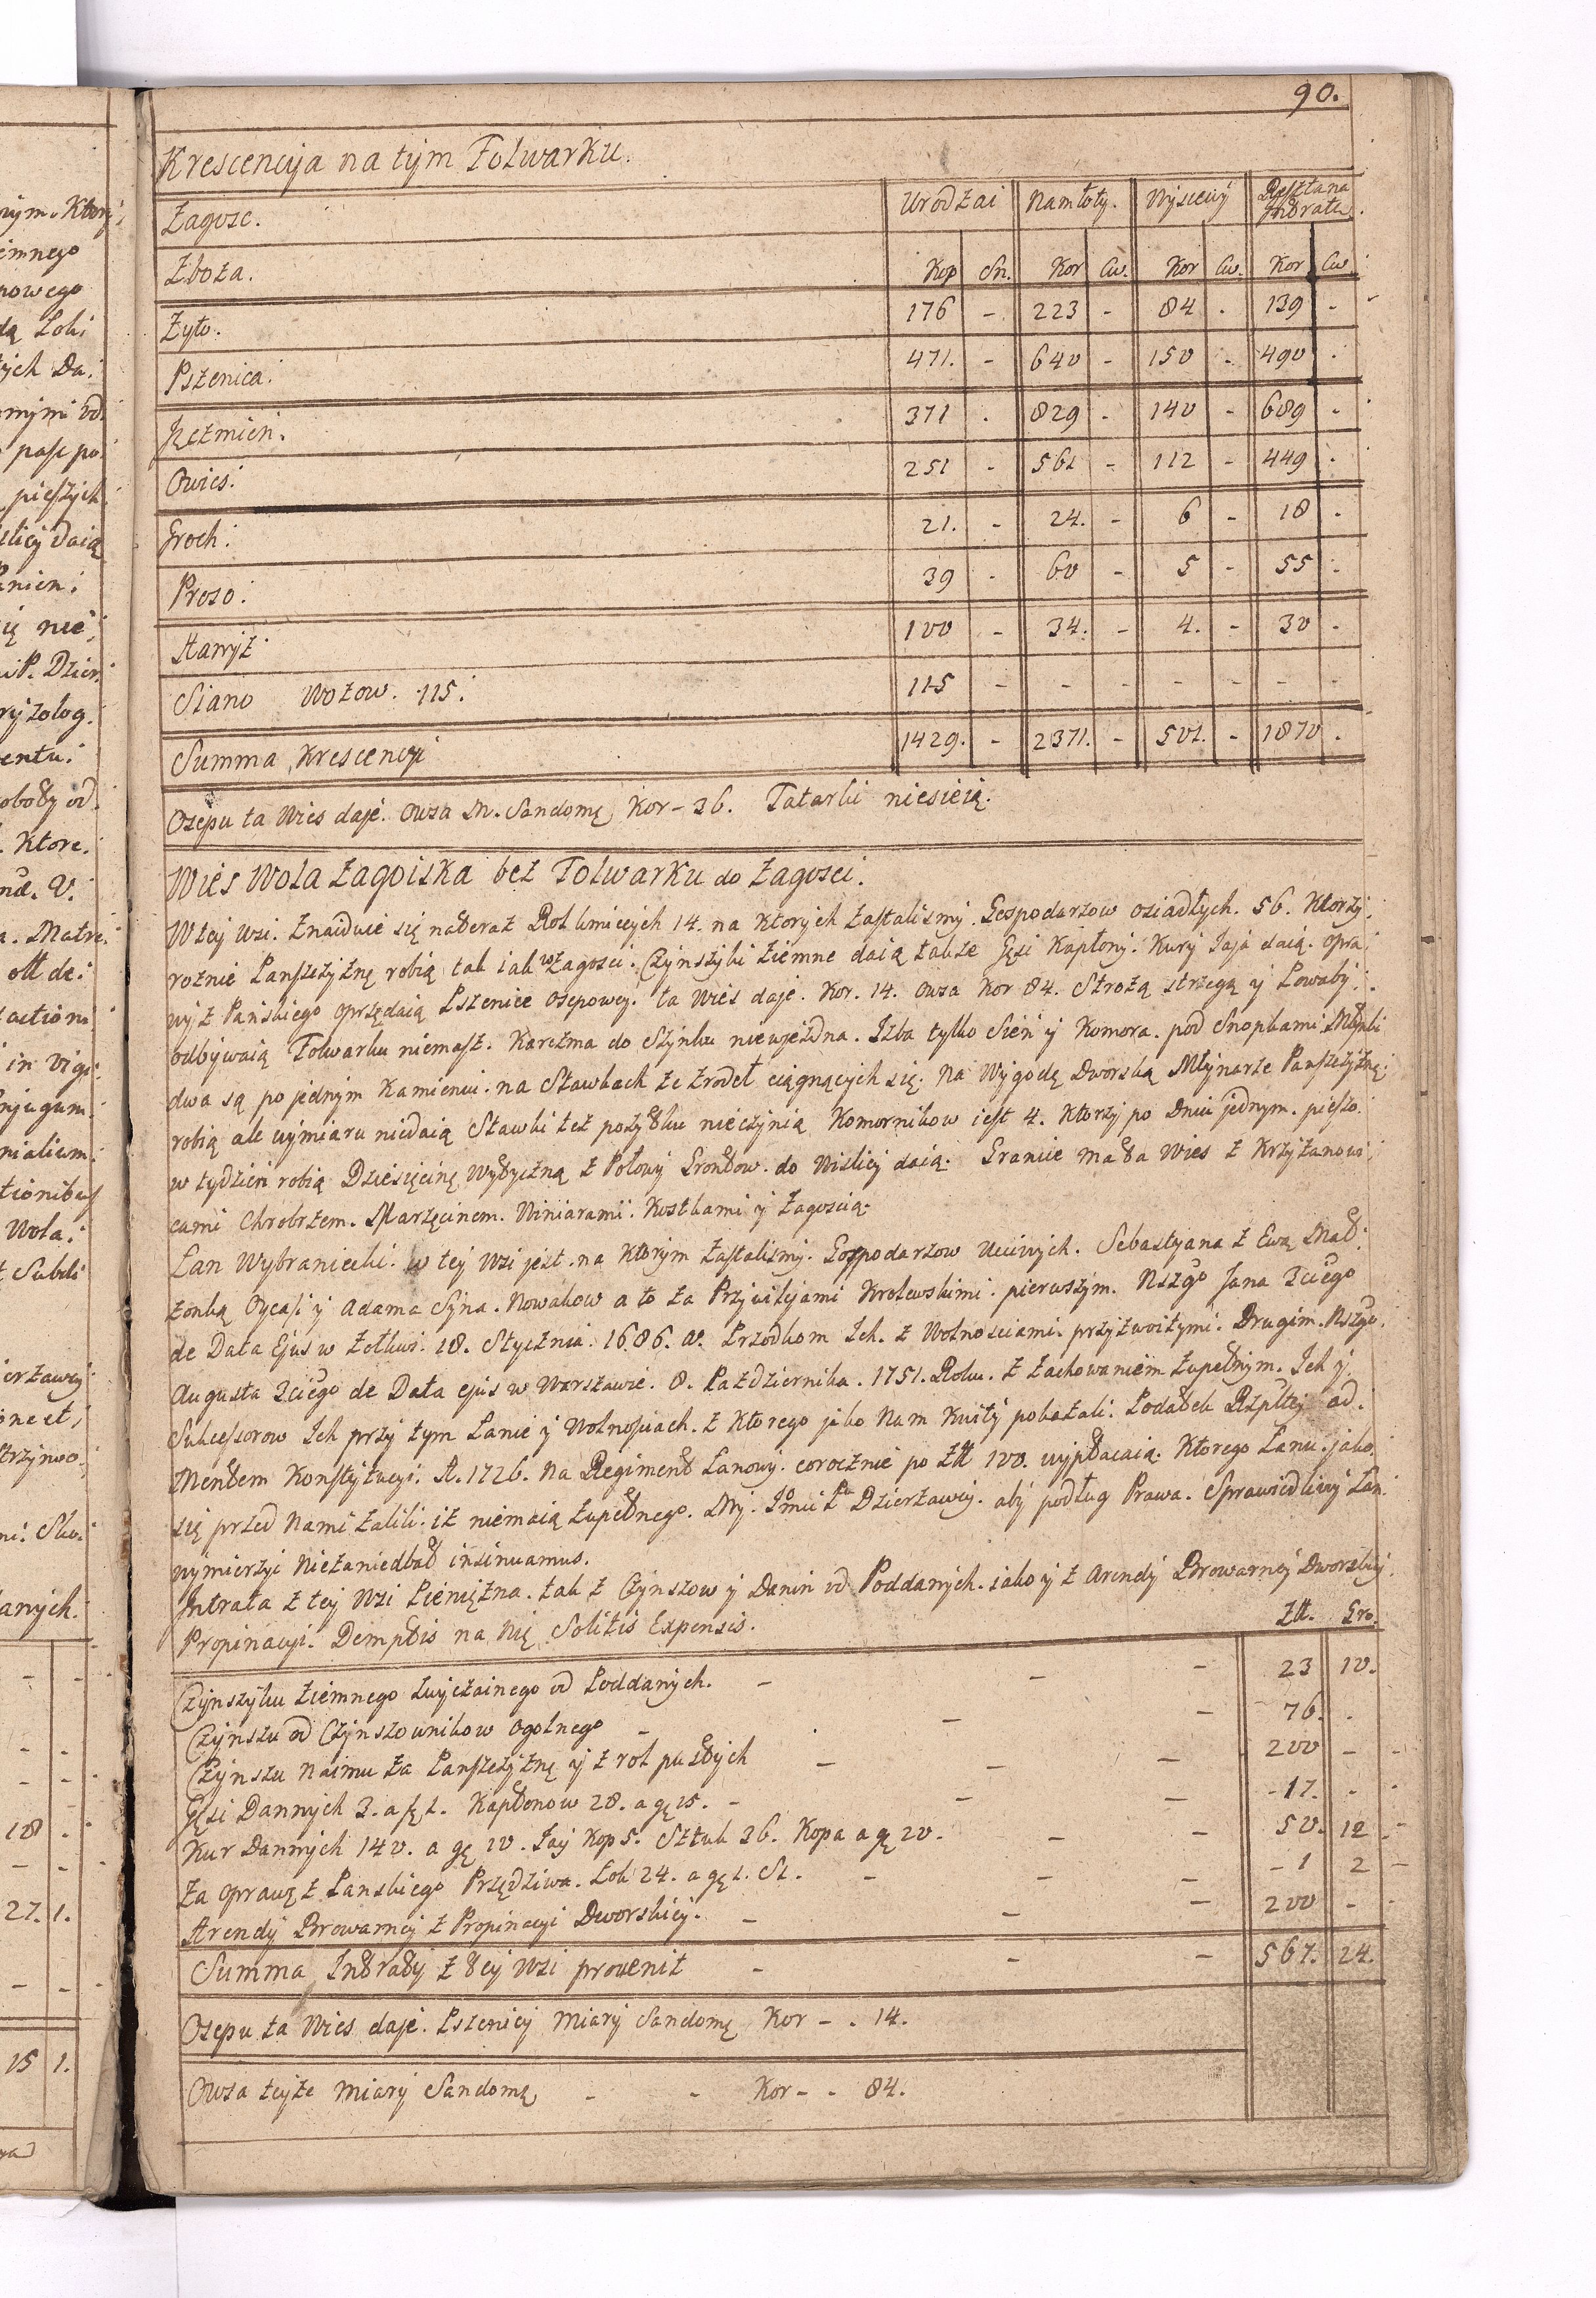 90.
Krescencyja na tym Folwarku.
Zagosc. Urodzai Namłoty. Wysiewy Resztana Jntrata.
Zboza. Kop Sn. Kor Cw. Kor Cw. Kor Cw
Zyto. 176 - 223 - 84 . 139 -
Pszenica. 471. - 640 - 150 - 490 .
Jęczmien. 371 . 829 - 140 - 689 .
Owies. 251 - 561 - 112 - 449 .
Groch. 21. - 24. - 6 - 18 .
Proso. 39 - 60 - 5 - 55 .
Hanyż 100 - 34. - 4. - 30 -
Siano Wozow. 115. 115 - - - - - - -
Summa Krescencyi 1429. - 2371. - 501. - 1870 .
Osepu ta Wies daje. Owsa M. Sandomę Kor - 36. Tatarki niesieią.
Wies Wola Zagoiska bez Folwarku do Zagosci.
W tey Wsi. Znaiduie się na teraz Rol kmiecych 14. na ktorych zastalismy. Gospodarzow osiadłych. 56. Ktorzy
roznie Panszczyznę robią tak iak w Zagosci. Czynszyki ziemne daią takze Gęsi Kapłony. Kury Jaja daią. Opra
wy z Pańskiego oprzędaią Pszenice Osepowey. ta Wieś daje. Kor. 14. Owsa Kor 84. Strożą strzegą y Powaby
odbywaią Folwarku niemasz. Karczma do Szynku niewjezdna. Izba tylko Sień y Komora. pod Snopkami Młynki
dwa są po jednym Kamieniu. na Stawkach ze Zrodeł ciągnących się. na Wygodę Dworską Młynarze Panszczyznę
robią ale wymiaru niedaią Stawki tez pozytku nieczynią Komornikow iest 4. Ktorzy po Dniu jednym. pieszo
w tydzien robią Dziesięcinę Wytyczną z Połowy Grontow. do Wislicy daią. Granice ma ta Wies z Krzyzanowi
cami Chrobrzem. Marzęcinem. Winiarami. Kostkami y Zagoscią.
Łan Wybraniecki. w tey Wsi jest. na Ktorym zastalismy. Gospodarzow Ucciwych. Sebastyana z Ewą Mał
zonką Oycasi y Adama Syna. Nowakow a to za Przywilejami Krolewskimi. pierwszym. Nszgo Jana 3ciego
de Data Ejus w Zołkwi. 18. Stycznia. 1686. Przodkom Jch. z Wolnosciami. przyzwoitymi. Drugim. Nszgo
Augusta 3ciego de Data ejus w Warszawie. 8. Pazdziernika. 1751. Roku. z zachowaniem zupełnym. Jch y
Sukcessorow Jch przy tym Łanie y Wolnosciach. z Ktorego jako Nam Kwity pokazali. Podatek Rzpltey ad
Mentem Konstytucyi. A. 1726. na Regiment Łanowy. corocznie po Złł 100. wypłacaią. Ktorego Łanu. jako
się przed Nami zalili. iz niemaią zupełnego. My. Jmci Pu Dzierzawcy. aby podług Prawa. Sprawiedliwy Łan
wymierzyć Niezaniedbał insinuamus.
Jntrata z tey Wsi Pieniężna. tak z Czynszow y Danin od Poddanych. iako y z Arendy Browarney Dworskiey
Propinacyi. Demptis na Nię Solitis Expensis. Złł. Gro.
Czynszyku Ziemnego zwyczainego od Poddanych. - - - 23 10.
Czynszu od Czynszownikow Ogolnego - - - 76. .
Czynszu Naimu za Panszczyznę y z rol pustych - - - 200 -
Gęsi Dannych 3. a f. 1. Kapłonow 28. a gę 15. - - - 17. -
Kur Dannych 140. a gę 10. Jay Kop 5. Sztuk 36. Kopa a gę 20. - - 50. 12
Za oprawę z Panskiego Przędziwa. Łok 24. a gę 1. - - - 1 2
Arendy Browarney z Propinacyi Dworskiey. - - - 200 -
Summa Jntraty z tey Wsi provenit - - - 567. 24.
Osepu ta Wies daje. Pszenicy miary Sandomę Kor - . 14.
Owsa teyze miary Sandomę - - Kor - - 84.